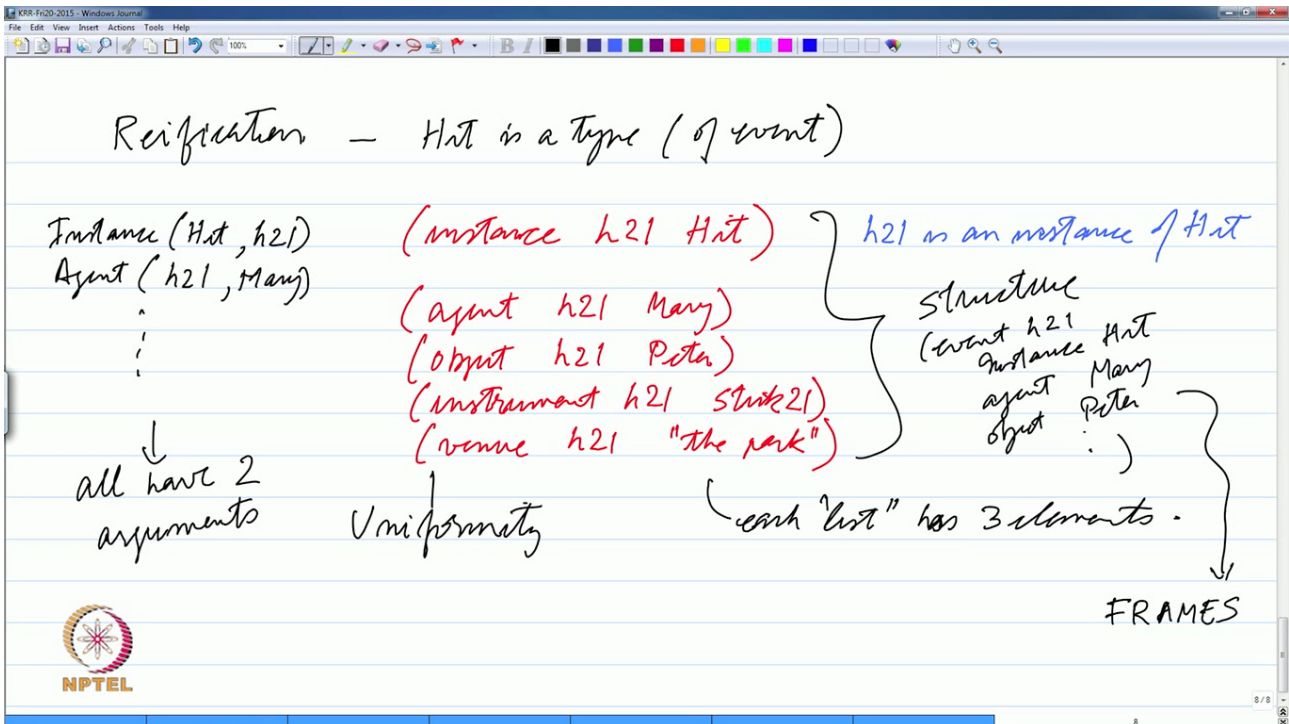 KRR-Fri20-2015 - Windows Journal
File Edit View Insert Actions Tools Help
100%
Reification - Hit is a type (of event)
Instance (Hit, h21)
Agent (h21, Mary)
all have 2
arguments
(instance h21 Hit)
(agent h21 Mary)
(object h21 Peter)
(instrument h21 Stick21)
(venue h21 "the park")
Uniformity
h21 is an instance of Hit
Structure
(event h21
instance Hit
agent Mary
object Peter
:
)
each "list" has 3 elements.
FRAMES
NPTEL
8/8
8